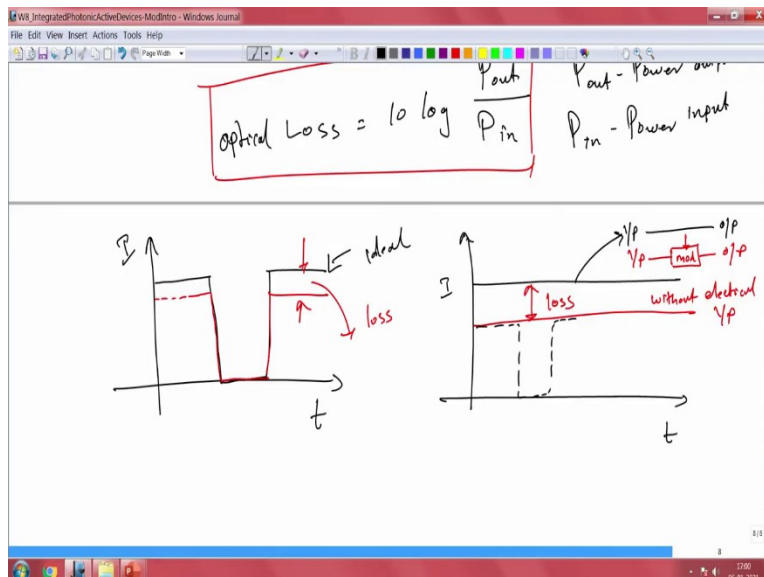 W8_IntegratedPhotonicActiveDevices-ModIntro - Windows Journal
File Edit View Insert Actions Tools Help
Page Width
B I
Optical Loss = 10 log Pout / Pin
Pout - Power
Pin - Power input
I
ideal
loss
t
I
I/P O/P
I/P mod O/P
loss
without electrical
I/P
t
8/8
8
17:00